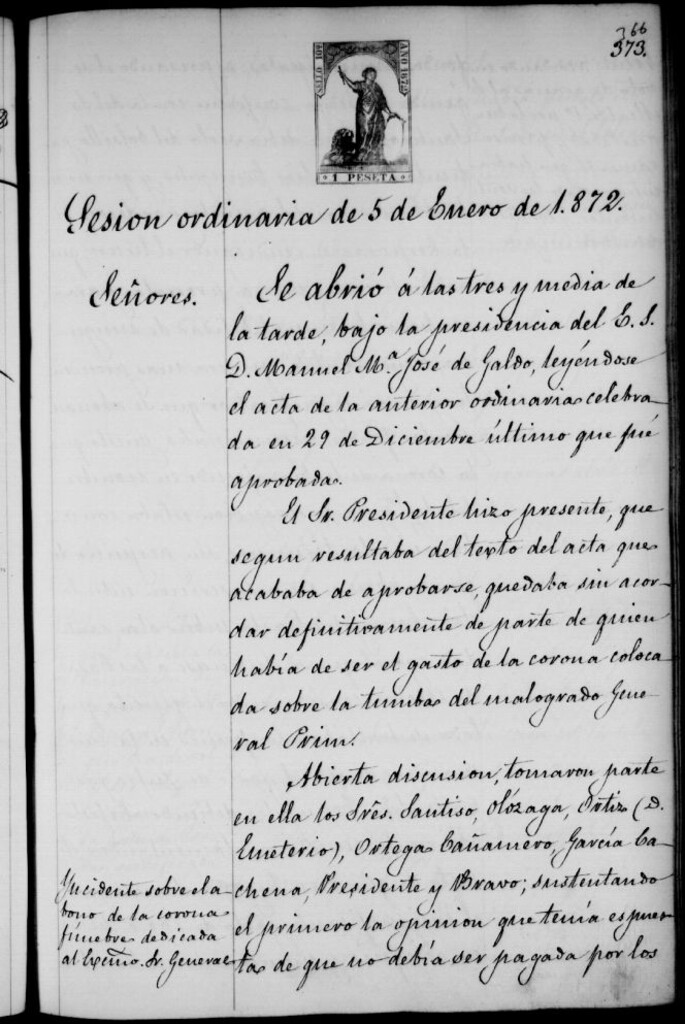 366
373.
SELLO 10º AÑO 1872
1 PESETA
Sesion ordinaria de 5 de Enero de 1.872.
Señores.
Se abrió á las tres y media de
la tarde, bajo la presidencia del E. S.
D. Manuel M.ª José de Galdo, leyéndose
el acta de la anterior ordinaria celebra
da en 29 de Diciembre último que fué
aprobada.
El Sr. Presidente hizo presente, que
segun resultaba del texto del acta que
acababa de aprobarse, quedaba sin acor-
dar definitivamente de parte de quien
había de ser el gasto de la corona coloca
da sobre la tumba del malogrado Gene
ral Prim.
Abierta discusion, tomaron parte
en ella los Srēs. Santiso, Olózaga, Ortiz (D.
Emeterio), Ortega Cañamero, García Ca-
chena, Presidente y Bravo; sustentando
el primero la opinion que tenía espues-
ta de que no debía ser pagada por los
Yncidente sobre el a-
bono de la corona
fúnebre dedicada
al Excmo. Sr. General